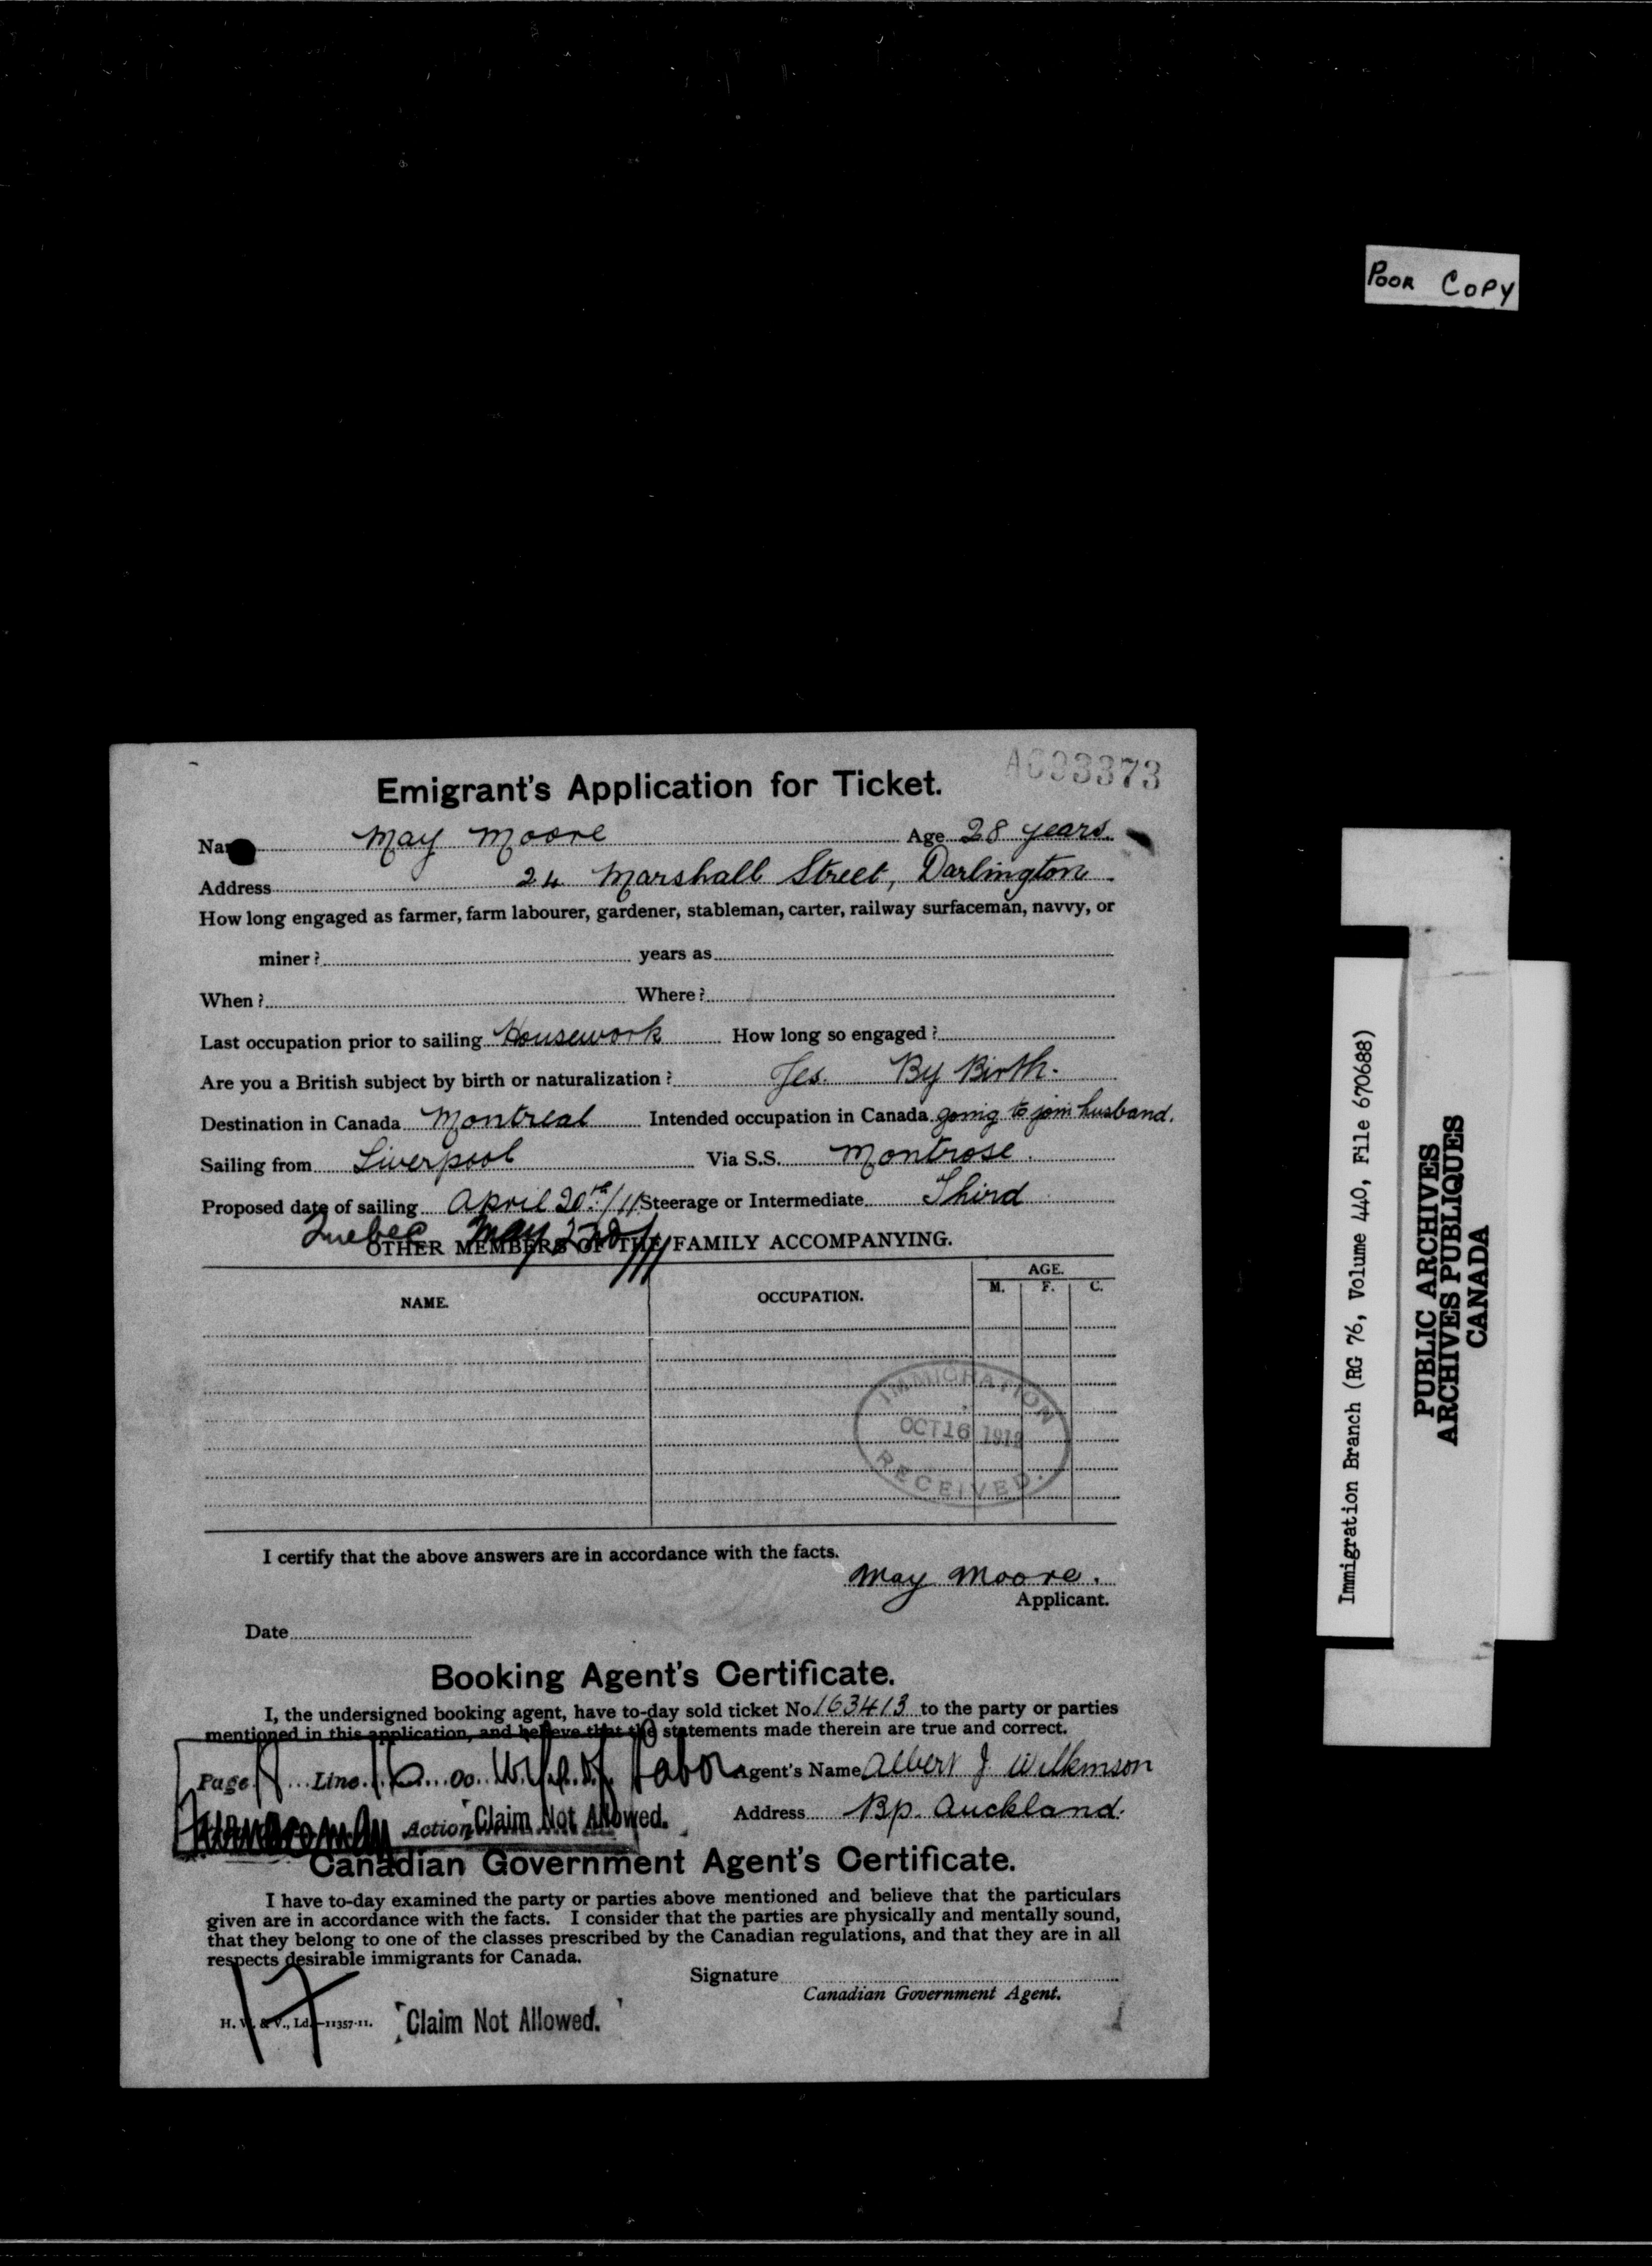 POOR COPY
A093373
Emigrant's Application for Ticket.
Na May Moore Age 28 years.
Address 24 Marshall Street, Darlington
How long engaged as farmer, farm labourer, gardener, stableman, carter, railway surfaceman, navvy, or
miner? years as
When? Where?
Last occupation prior to sailing Housework How long so engaged?
Are you a British subject by birth or naturalization? Yes. By Birth.
Destination in Canada Montreal Intended occupation in Canada going to join husband.
Sailing from Liverpool Via S.S. Montrose.
Proposed date of sailing April 20th/11 Steerage or Intermediate Third
Quebec May 2nd/11
OTHER MEMBERS OF THE FAMILY ACCOMPANYING.
NAME. OCCUPATION. AGE.
M. F. C.
IMMIGRATION
OCT 16 1912
RECEIVED.
I certify that the above answers are in accordance with the facts.
May Moore.
Applicant.
Date
Booking Agent's Certificate.
I, the undersigned booking agent, have to-day sold ticket No. 163413 to the party or parties
mentioned in this application, and believe that the statements made therein are true and correct.
Page Line oo. Labor Agent's Name Albert J Wilkinson
Action Claim Not Allowed. Address Bp. Auckland.
Canadian Government Agent's Certificate.
I have to-day examined the party or parties above mentioned and believe that the particulars
given are in accordance with the facts. I consider that the parties are physically and mentally sound,
that they belong to one of the classes prescribed by the Canadian regulations, and that they are in all
respects desirable immigrants for Canada.
Signature
Canadian Government Agent.
H. W. & V., Ld.—11357-11. Claim Not Allowed.
17
Immigration Branch (RG 76, Volume 440, File 670688)
PUBLIC ARCHIVES
ARCHIVES PUBLIQUES
CANADA